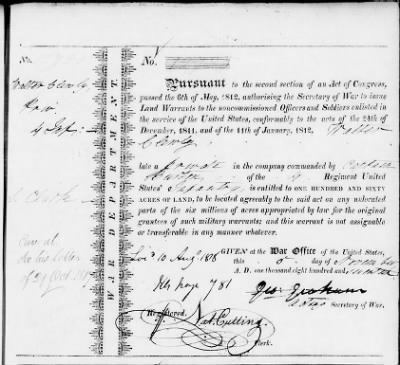 No.
No.
Pursuant to the second section of an Act of Congress,
passed the 6th of May, 1812, authorising the Secretary of War to issue
Land Warrants to the noncommissioned Officers and Soldiers enlisted in
the service of the United States, conformably to the acts of the 24th of
December, 1811, and of the 11th of January, 1812,
late a in the company commanded by Captain
of the Regiment United
States' Infantry, is entitled to ONE HUNDRED AND SIXTY
ACRES OF LAND, to be located agreeably to the said act on any unlocated
parts of the six millions of acres appropriated by law for the original
grantees of such military warrants; and this warrant is not assignable
or transferable in any manner whatever.
GIVEN at the War Office of the United States,
this day of November
A. D. one thousand eight hundred and
10 Aug 1818
page 781
Geo: Graham
Secretary of War.
Registered.
Nat. Cutting.
Clerk.
WAR DEPARTMENT.
Clark
his letter
of 29 Oct.